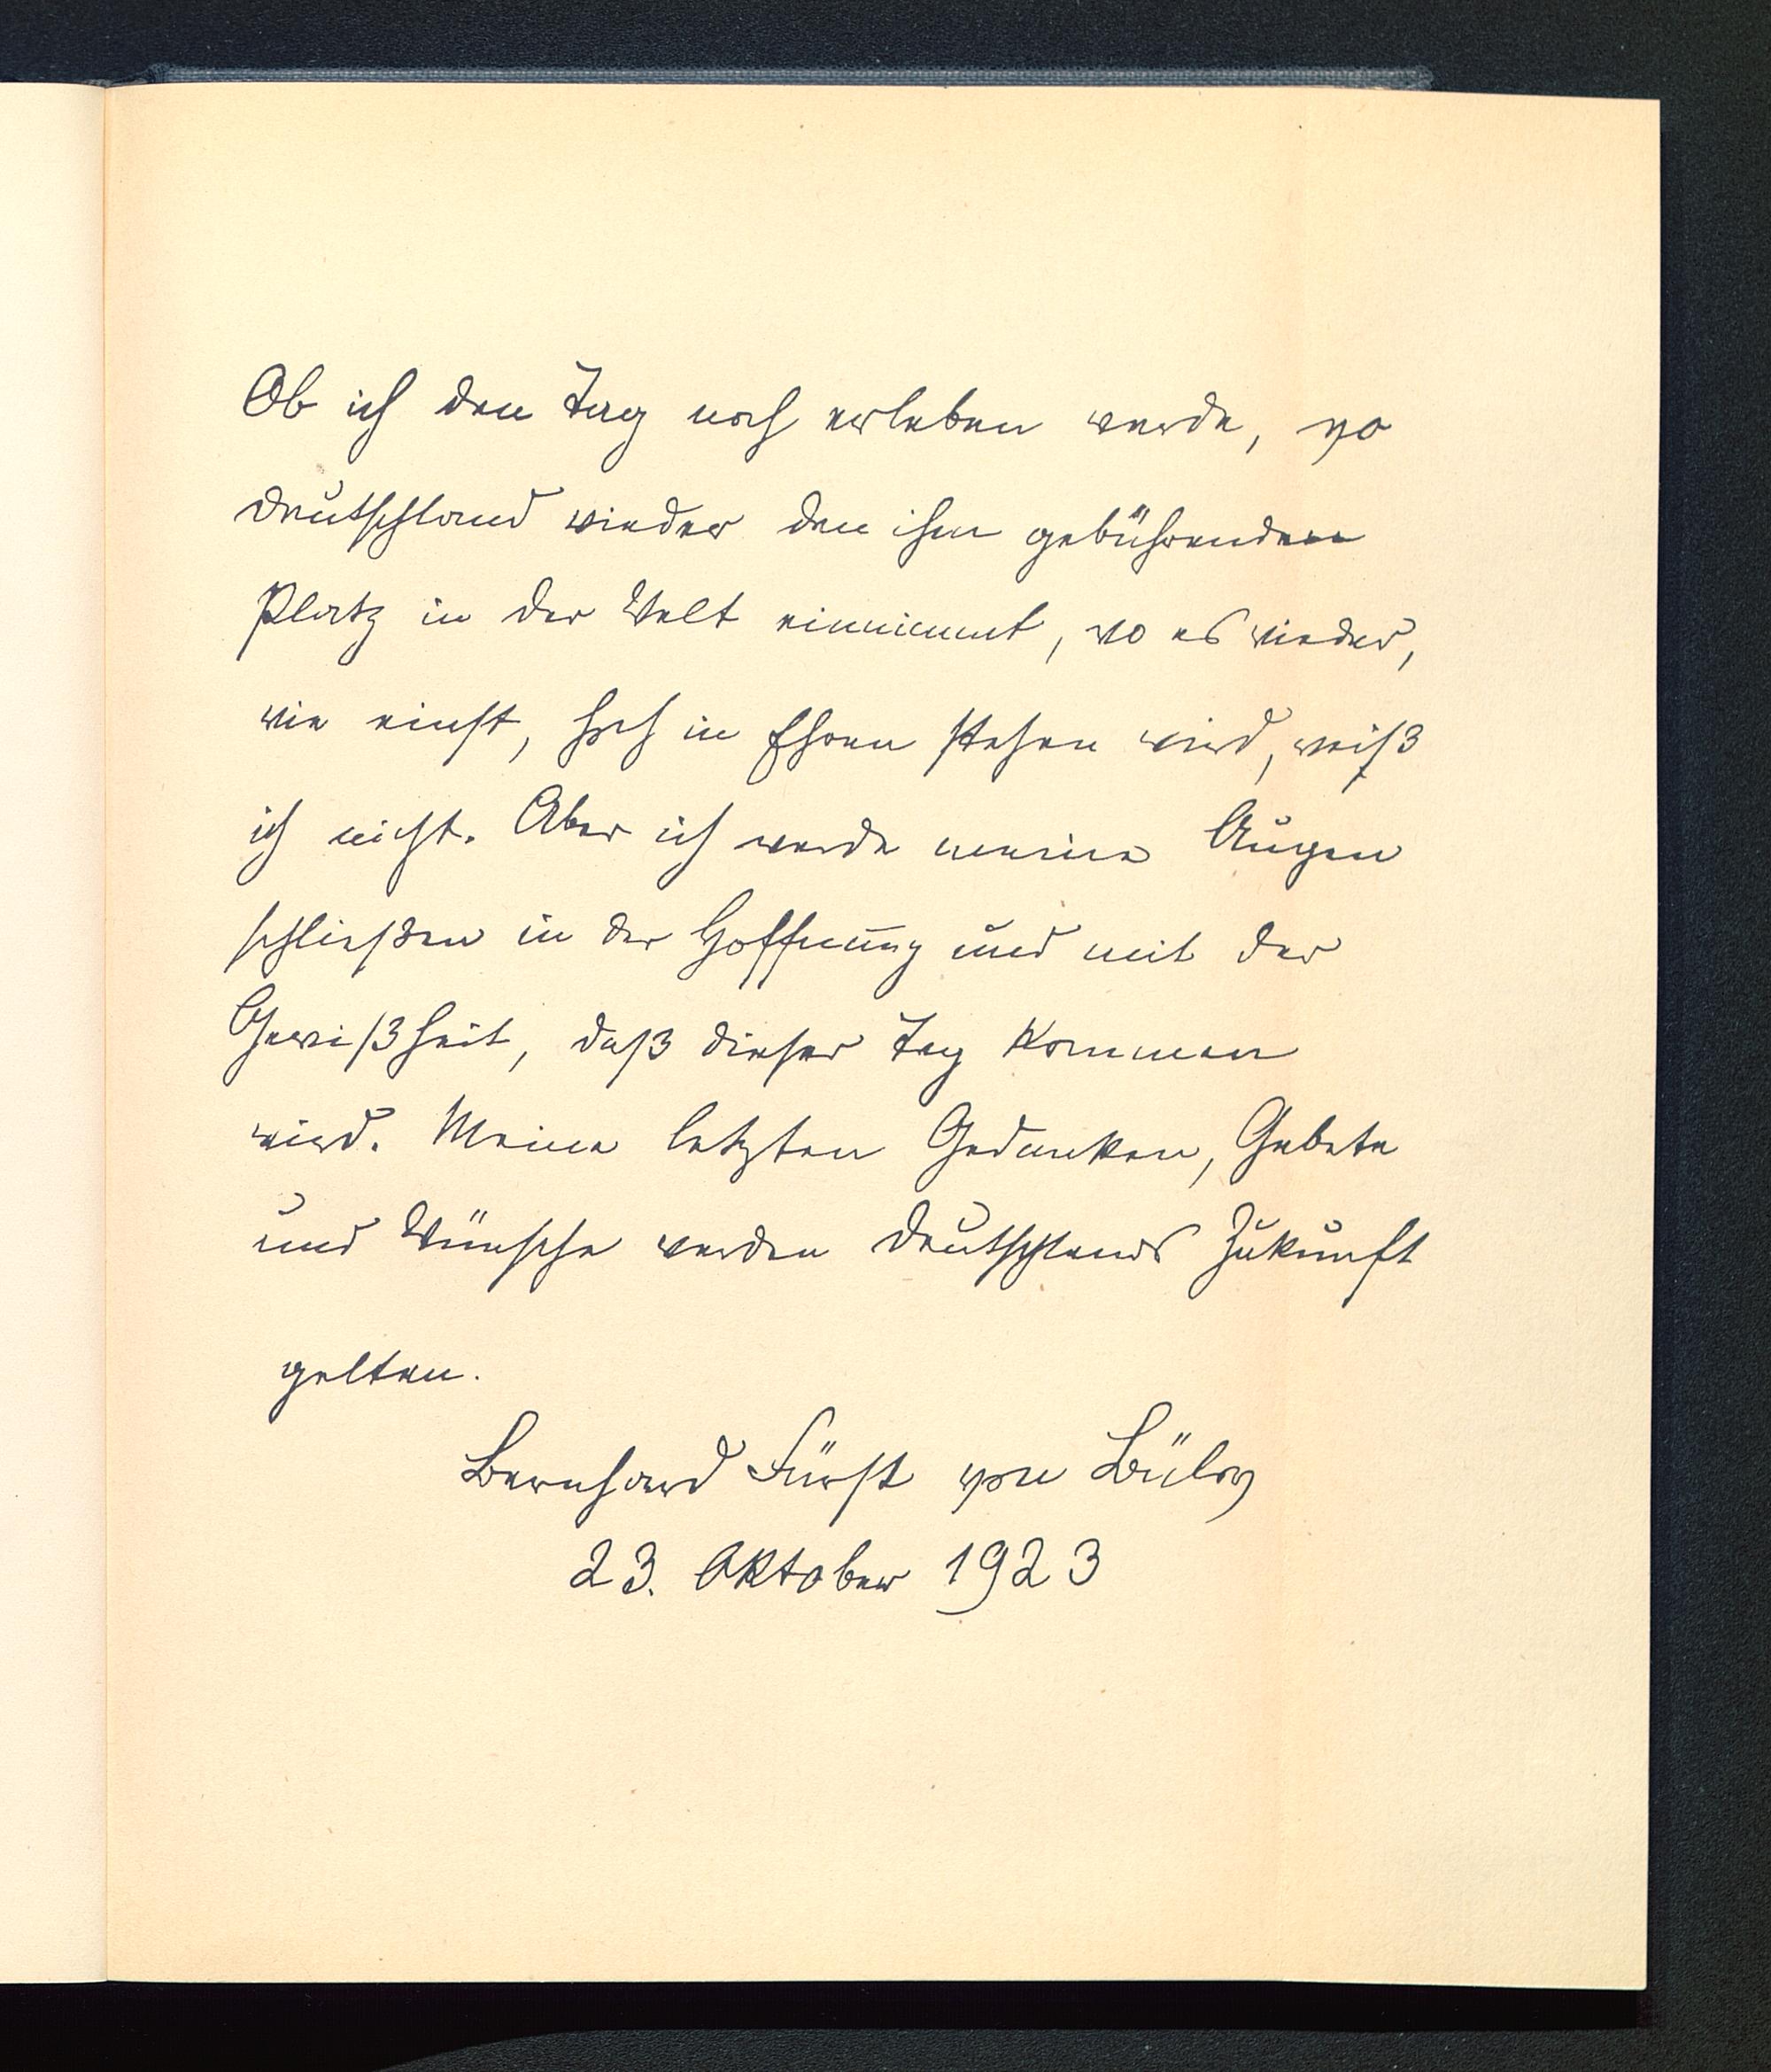 Ob ich den Tag noch erleben werde, wo
Deutschland wieder den ihm gebührenden
Platz in der Welt einnimmt, wo es wieder,
wie einst, hoch in Ehren stehen wird, weiß
ich nicht. Aber ich werde meine Augen
schließen in der Hoffnung und mit der
Gewißheit, daß dieser Tag kommen
wird. Meine letzten Gedanken, Gebete
und Wünsche werden Deutschlands Zukunft
gelten.
Bernhard Fürst von Bülow
23. Oktober 1923